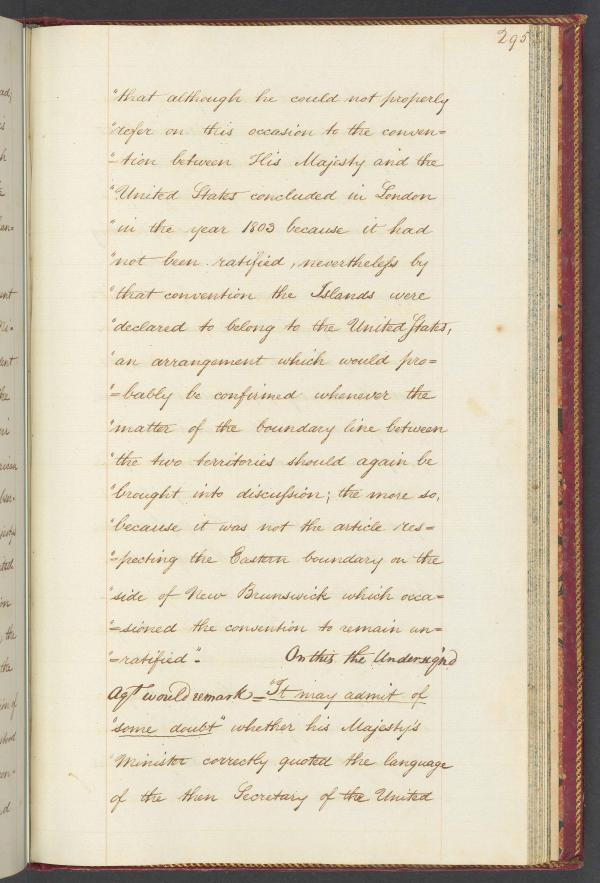 295
"that although he could not properly
"refer on this occasion to the conven=
"=tion between His Majesty and the
"United States concluded in London
"in the year 1803 because it had
"not been ratified, nevertheless by
"that convention the Islands were
"declared to belong to the United States,
"an arrangement which would pro=
"=bably be confirmed whenever the
"matter of the boundary line between
"the two territories should again be
"brought into discussion; the more so,
"because it was not the article res=
"=pecting the Eastern boundary on the
"side of New Brunswick which occa=
"=sioned the convention to remain un=
"=ratified". On this the Undersign'd
Agt would remark - "It may admit of
"some doubt" whether his Majesty's
Minister correctly quoted the language
of the then Secretary of the United